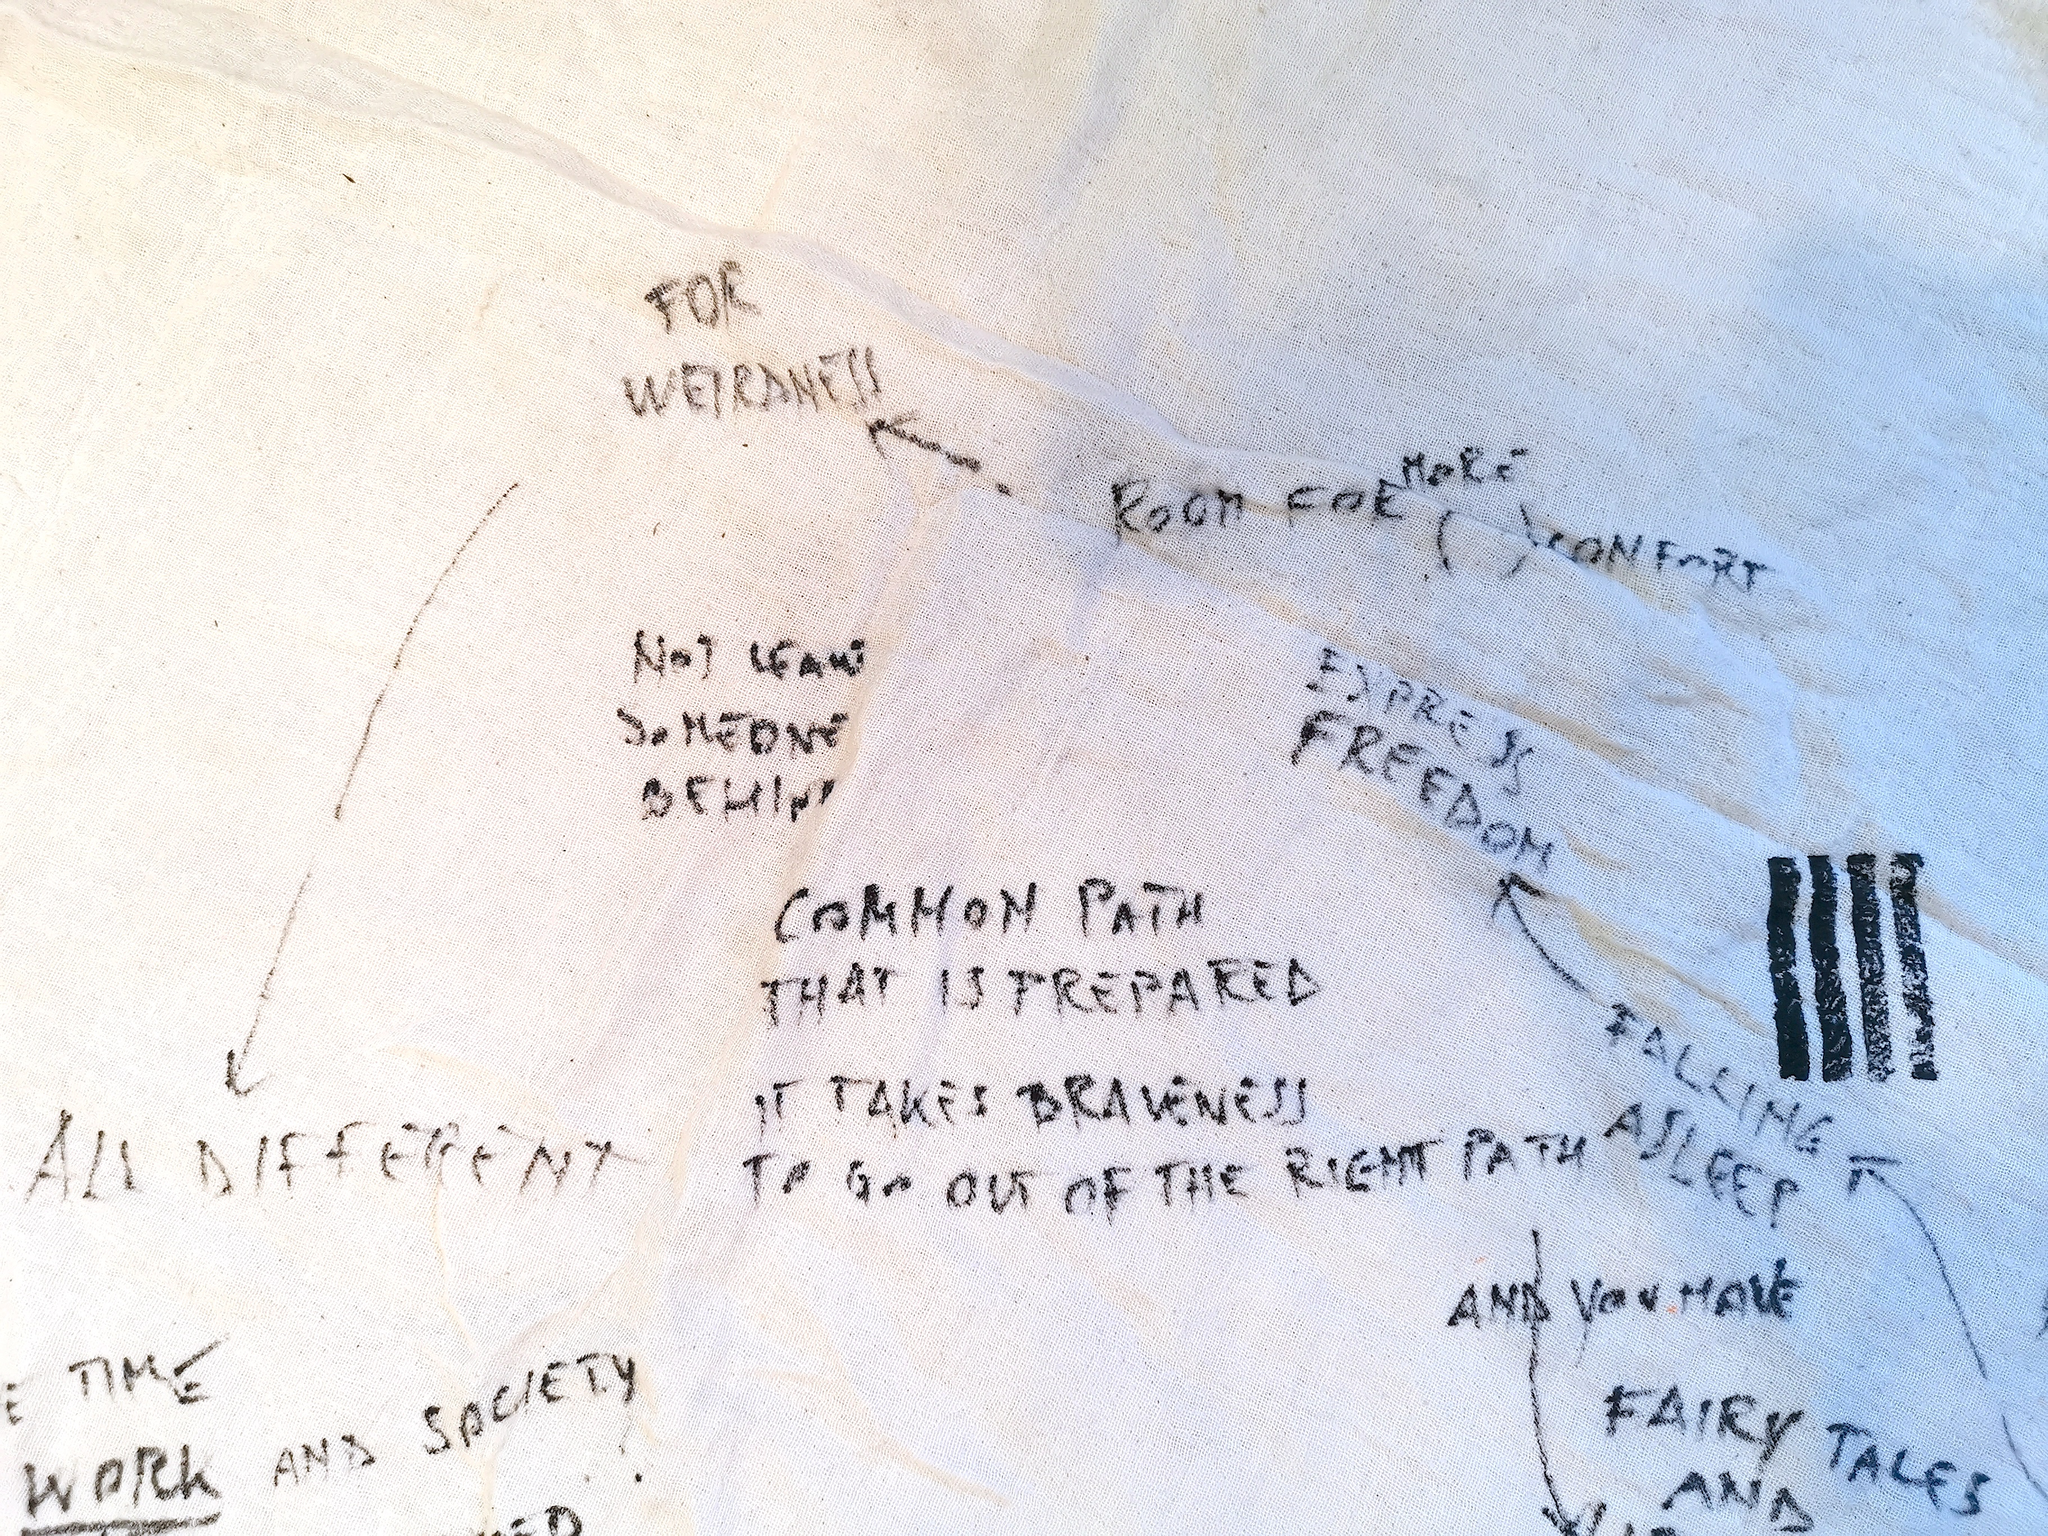 FOR
WEIRDNESS
ROOM FOR MORE
( ) CONFORT
NOT
SOMEONE
EXPRESS
FREEDOM
COMMON PATH
THAT IS PREPARED
IT TAKES BRAVENESS
TO GO OUT OF THE RIGHT PATH
FALLING
ASLEEP
ALL DIFFERENT
AND YOU HAVE
FAIRY TALES
AND
TIME
WORK AND SOCIETY